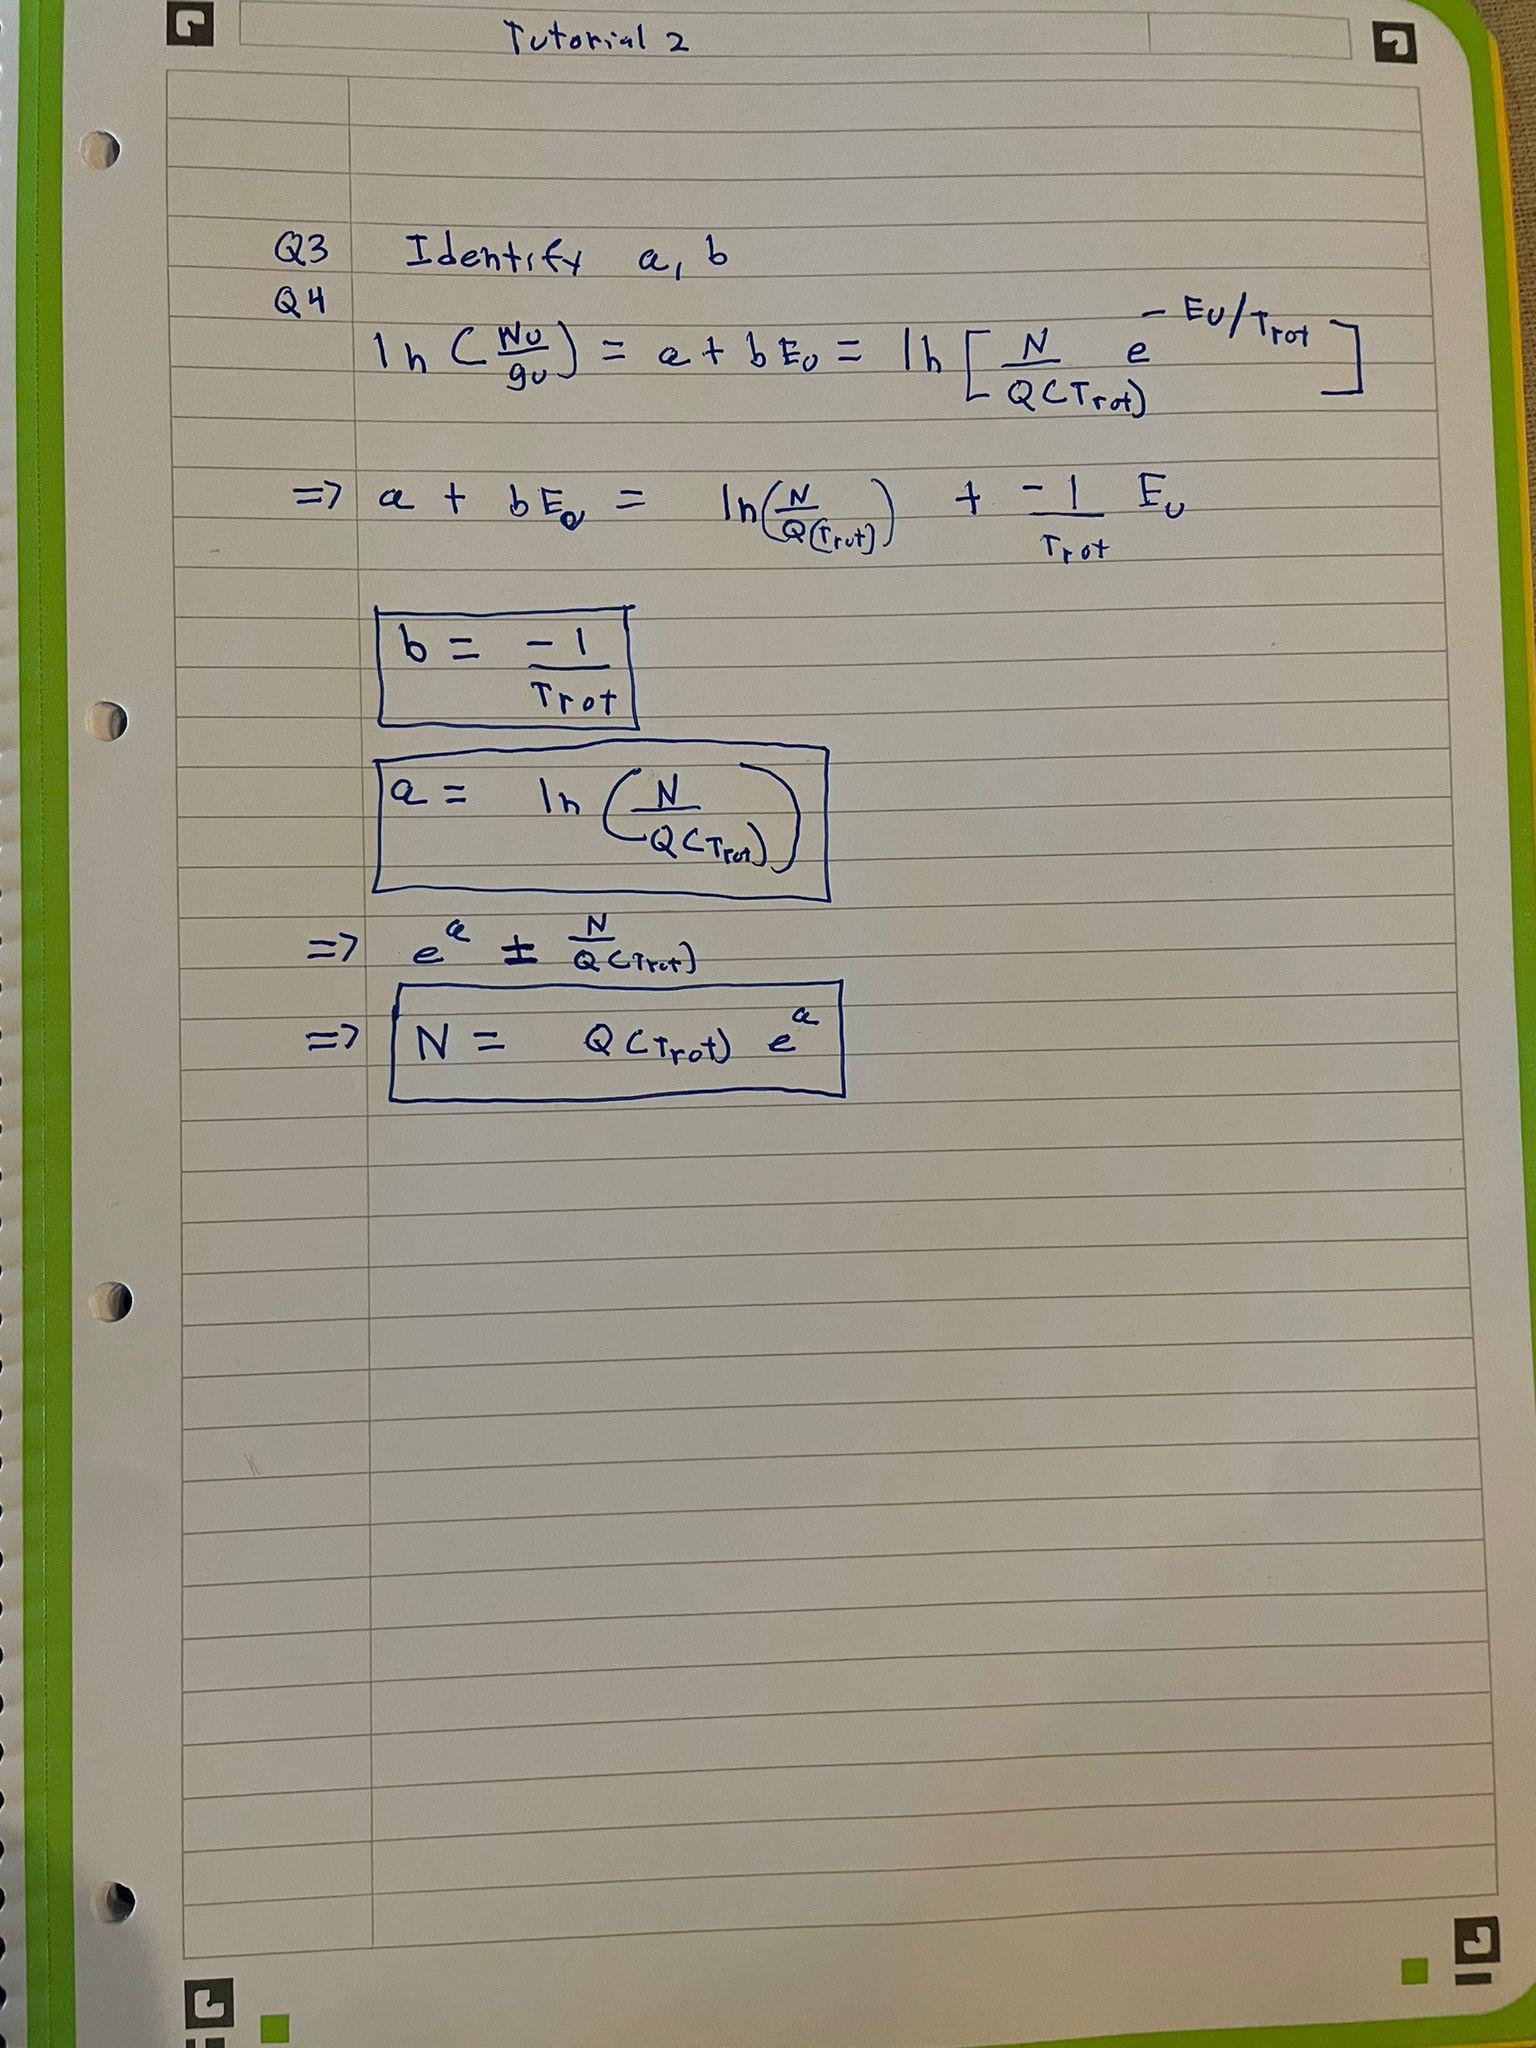 Tutorial 2
Q3 Identify a, b
Q4
ln (Nu/gu) = a + b Eu = ln [N/Q(Trot) e^-Eu/Trot]
=> a + b Eu = ln(N/Q(Trot)) + -1/Trot Eu
b = -1/Trot
a = ln (N/Q(Trot))
=> e^a = N/Q(Trot)
=> N = Q(Trot) e^a